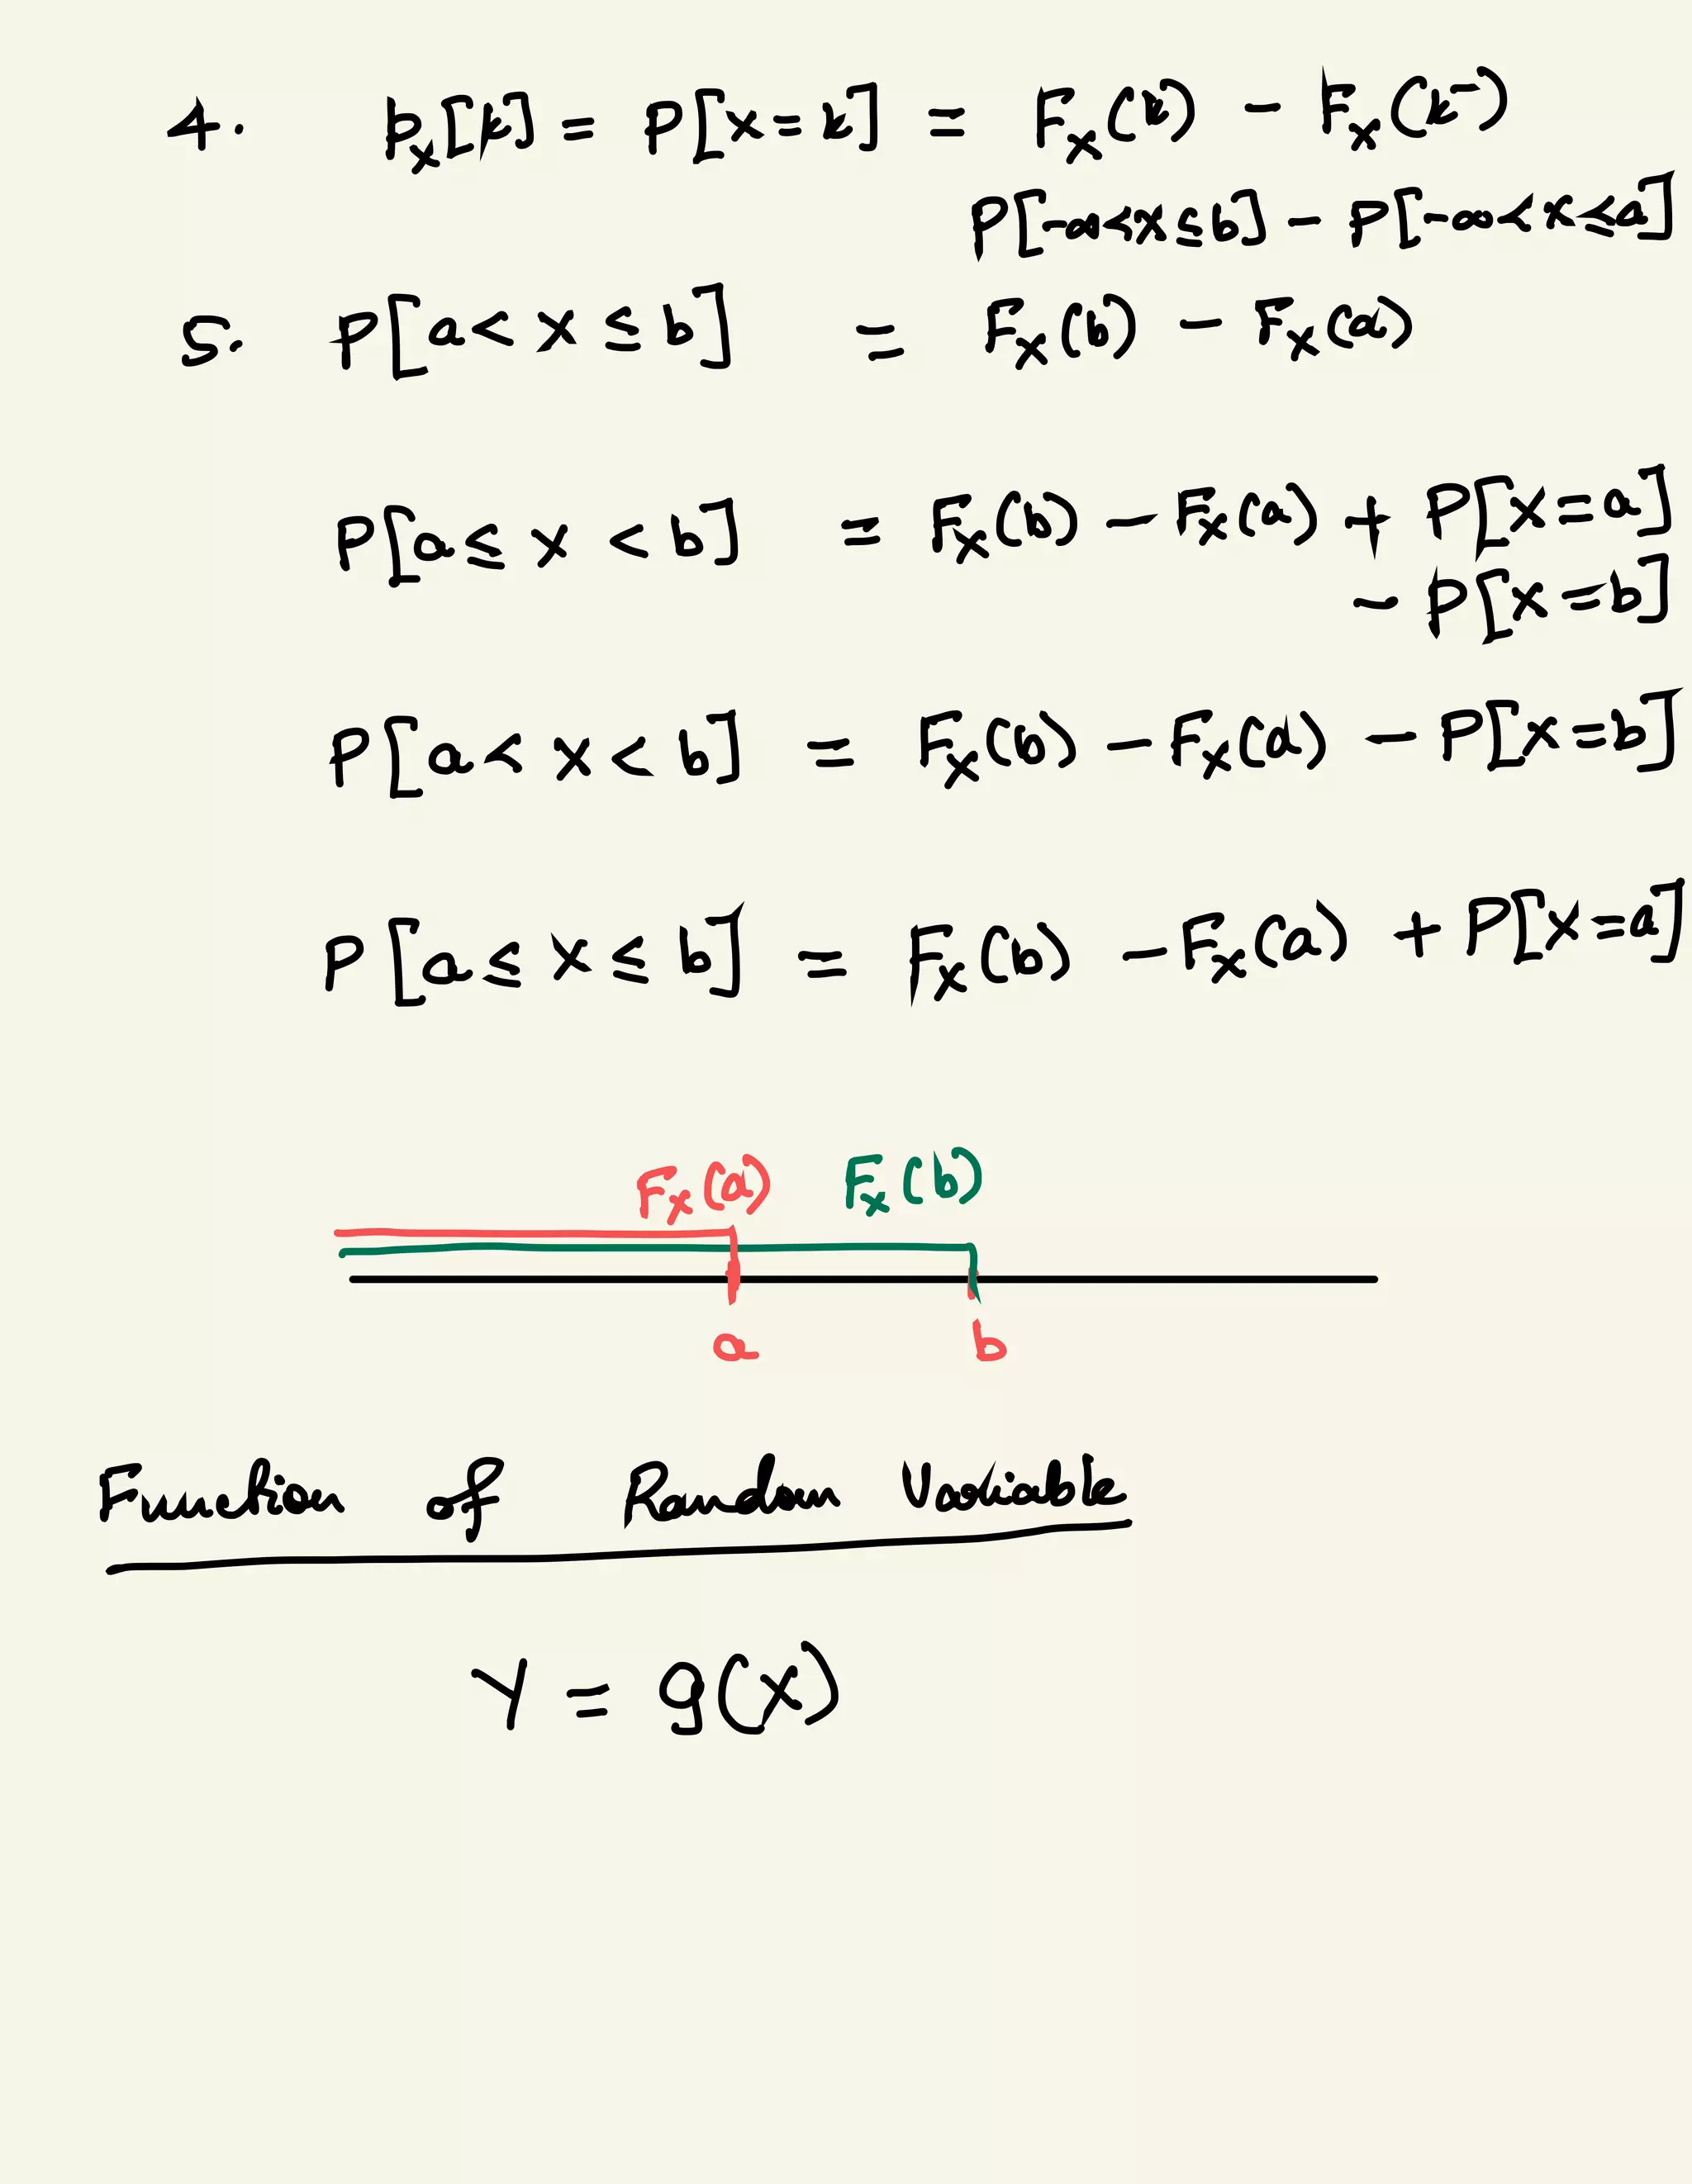 4. p_X[k] = P[X=k] = F_X(k) - F_X(k⁻)
P[-∞<X≤b] - P[-∞<X≤a]
5. P[a<X≤b] = F_X(b) - F_X(a)
P[a≤X<b] = F_X(b) - F_X(a) + P[X=a]
- P[X=b]
P[a<X<b] = F_X(b) - F_X(a) - P[X=b]
P[a≤X≤b] = F_X(b) - F_X(a) + P[X=a]
F_X(a) F_X(b)
a b
Function of Random Variable
Y = g(X)